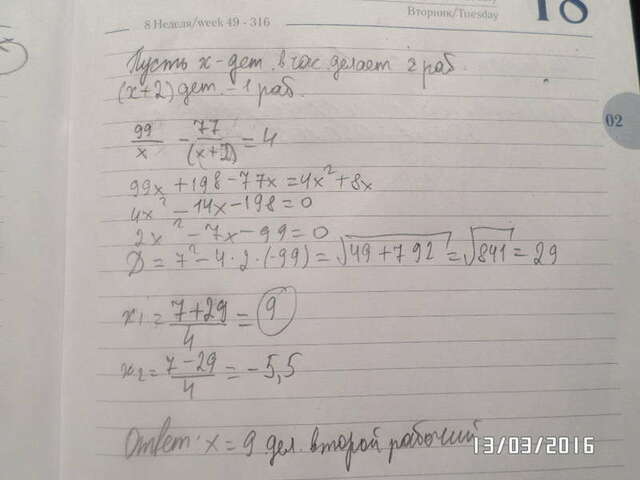 8 Неделя/week 49 - 316
Вторник/Tuesday
18
02
Пусть x - дет. в час делает 2 раб.
(x+2) дет. - 1 раб.
99/x - 77/(x+2) = 4
99x + 198 - 77x = 4x² + 8x
4x² - 14x - 198 = 0
2x² - 7x - 99 = 0
D = 7² - 4·2·(-99) = √49+792 = √841 = 29
x₁ = 7+29/4 = 9
x₂ = 7-29/4 = -5,5
Ответ: x = 9 дел. второй рабочий
13/03/2016